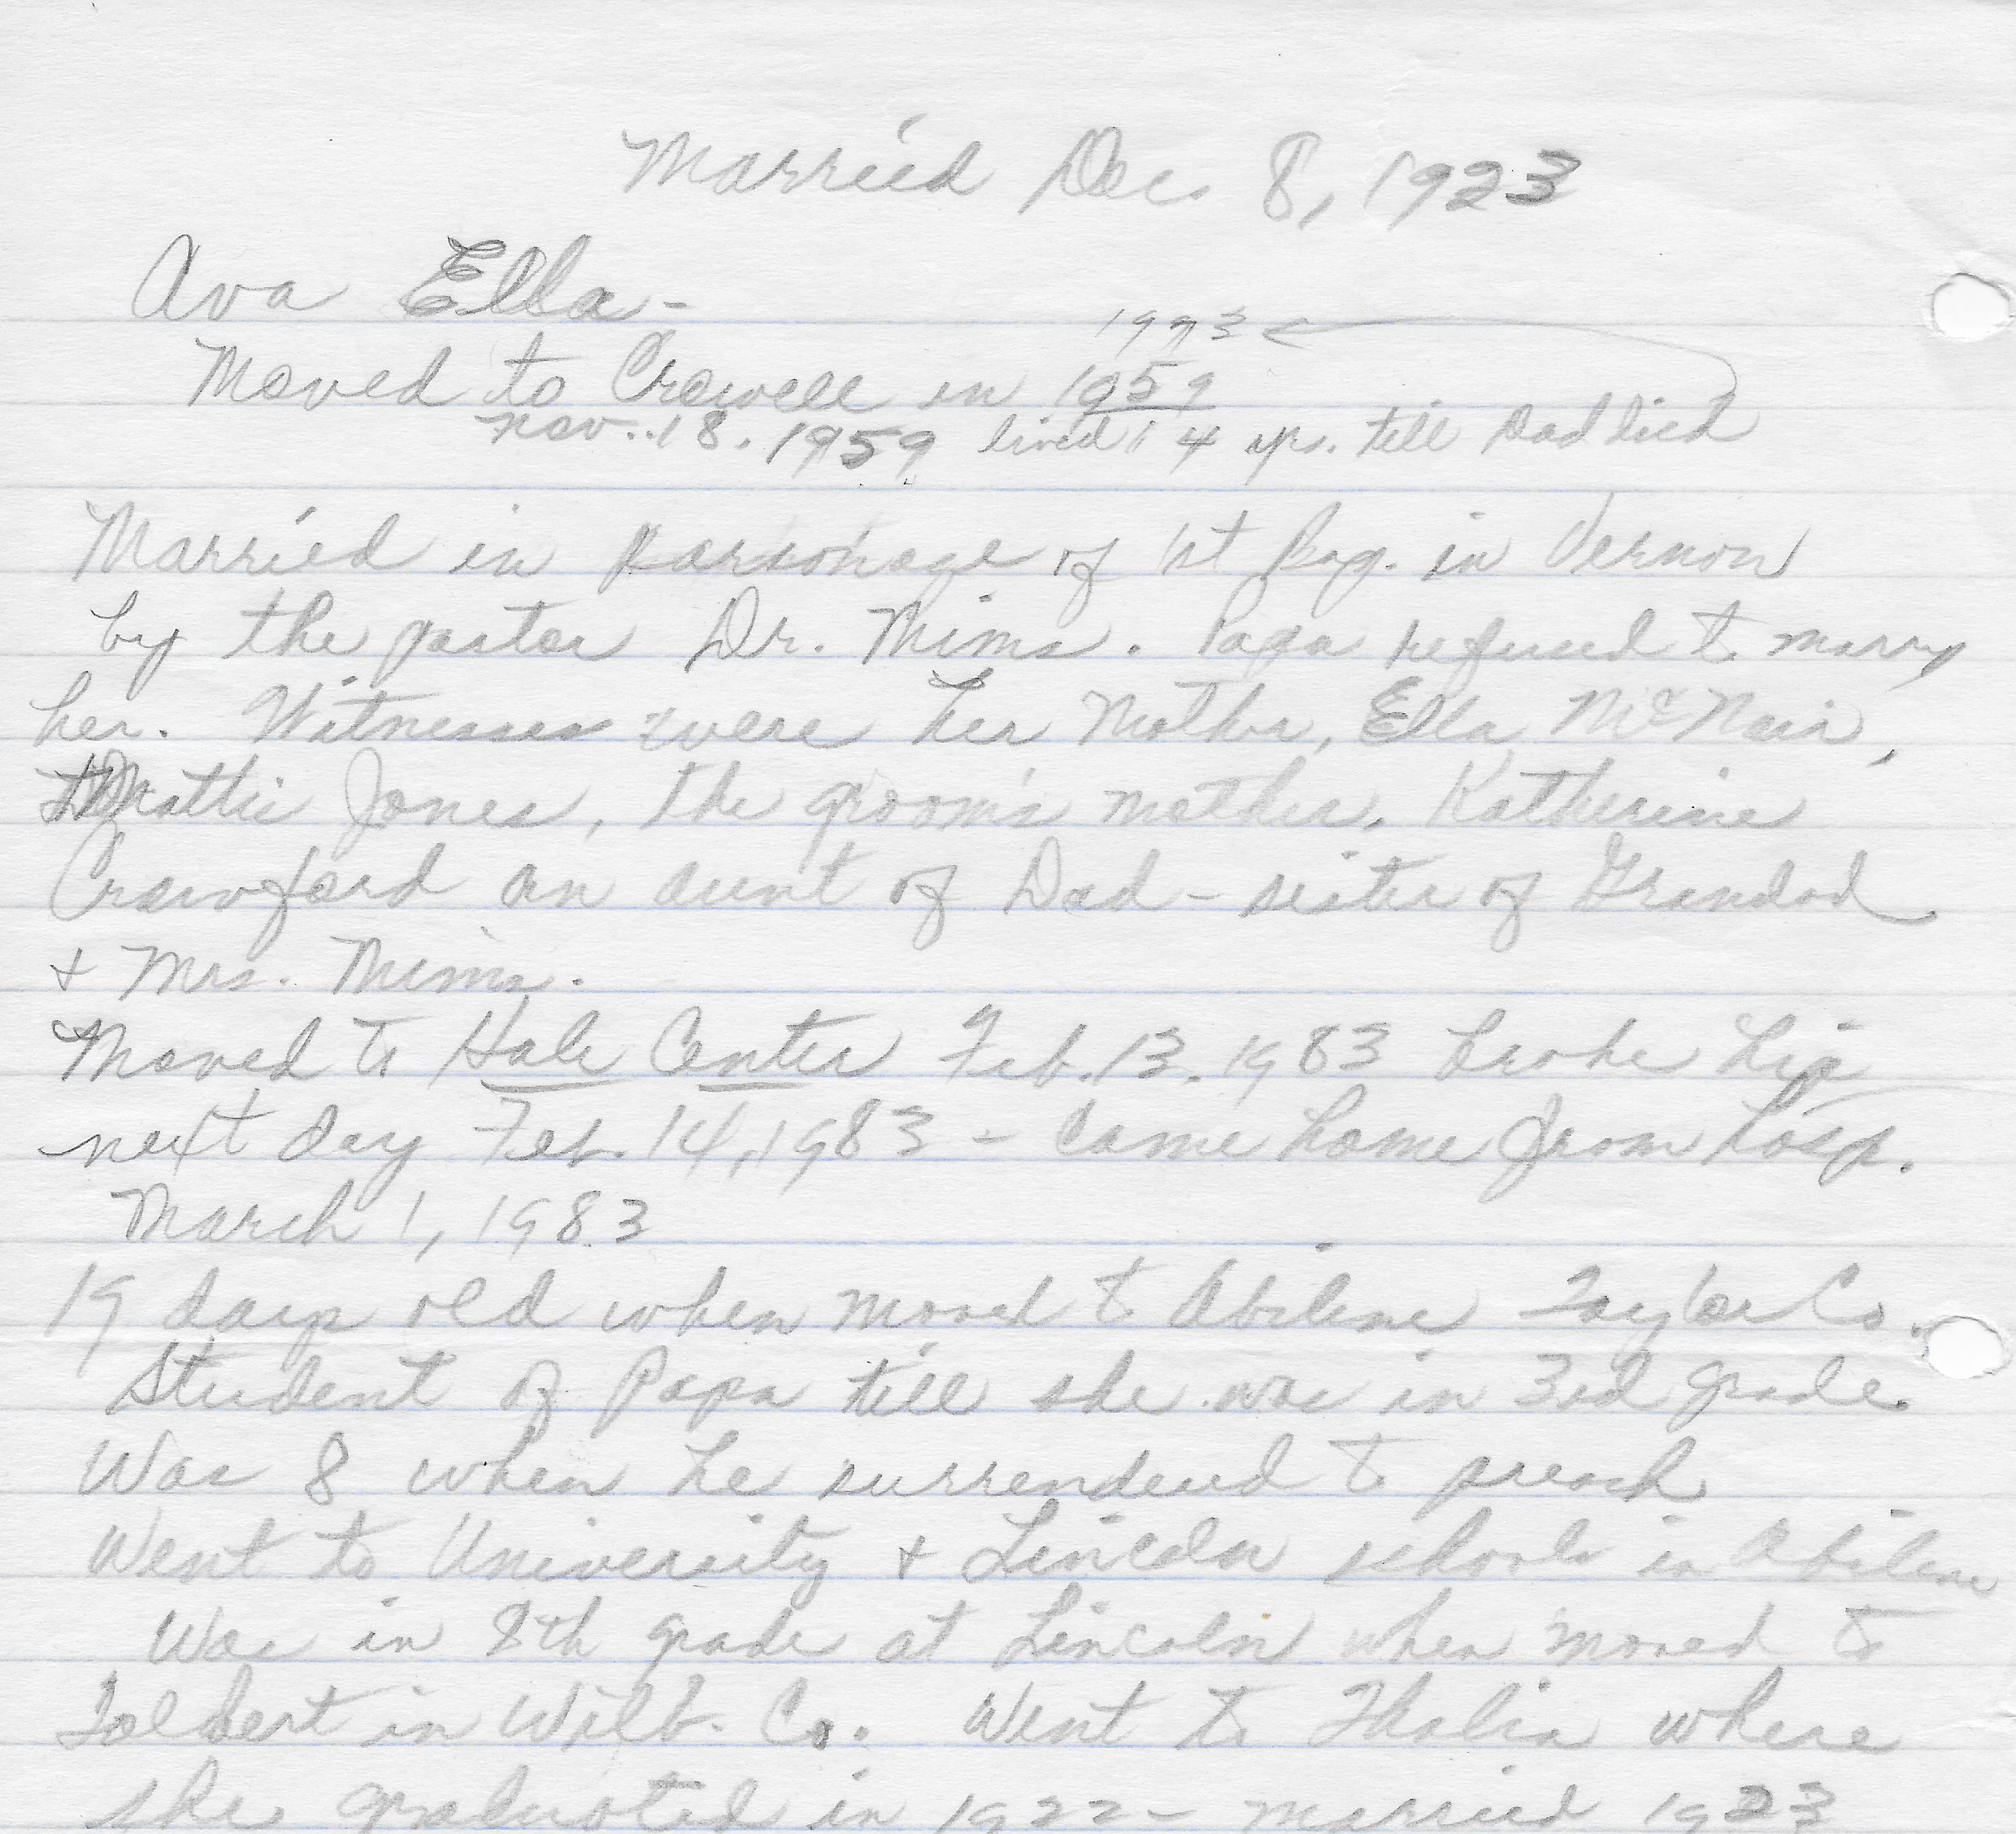 Married Dec. 8, 1923
Ava Ella -
1973
Moved to Crowell in 1959
Nov. 18, 1959 lived 14 yrs. till Dad died
Married in parsonage of 1st Bap. in Vernon
by the pastor Dr. Mims. Papa refused to marry
her. Witnesses were her mother, Ella McNair,
Mattie Jones, the groom's mother, Katherine
Crawford an aunt of Dad - sister of Grandad
+ Mrs. Mims.
Moved to Hale Center Feb. 13, 1983 broke hip
next day Feb. 14, 1983 - Came home from hosp.
March 1, 1983
19 days old when moved to Abilene Taylor Co.
Student of Papa till she was in 3rd grade.
Was 8 when he surrendered to preach
Went to University + Lincoln schools in Abilene
Was in 8th grade at Lincoln when moved to
Tolbert in Wilb. Co. Went to Thalia where
she graduated in 1922 - married 1923